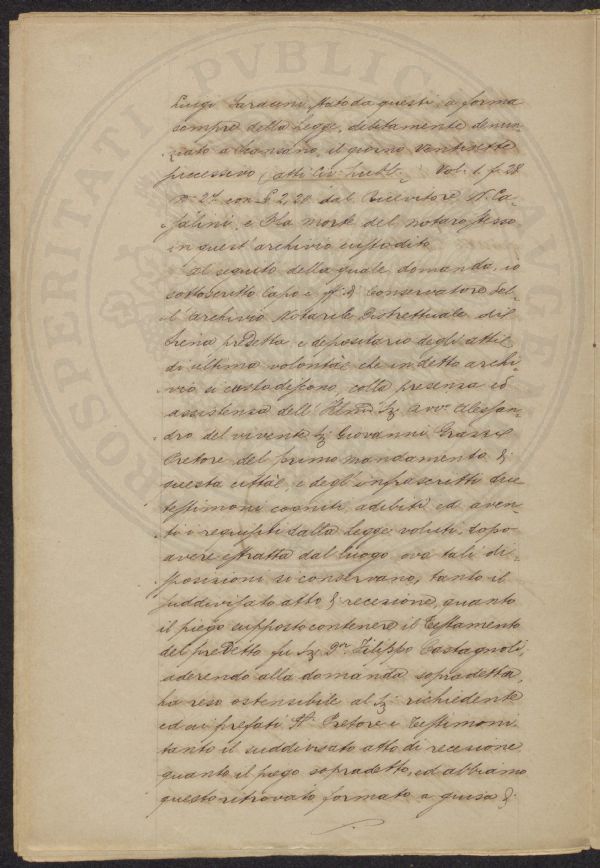 Luigi Saracini, Nato da questi, a forma
sempre della Legge, debitamente denun-
ziato a Consano, il giorno Ventisette
successivo (atti Civ: Pubb:  Vol. 1, f. 38
N: 27 con £ 2,20 dal Ricevitore N. Ca-
salini, e Pla morte del notaro stesso
in quest'archivio custodito
Al seguito della quale domanda, io
sottoscritto Capo e ff: di Conservatore del-
l'archivio Notarile Distrettuale di
Siena predetta e depositario degli atti
di ultima volontà che in detto archi-
vio si custodiscono, colla presenza ed
assistenza dell' Illmo Sig. Avv. Alessan-
dro del vivente Sig. Giovanni Grassi
Pretore del primo mandamento di
questa città, e degli infrascritti due
testimoni cogniti, adibiti ed aven-
ti i requisiti dalla Legge voluti, dopo
avere estratta dal luogo ove tali di-
sposizioni si conservano, tanto il
suddivisato atto di recezione, quanto
il piego supposto contenere il Testamento
del predetto fu Sig. Dr. Filippo Castagnoli,
aderendo alla domanda sopradetta,
ha reso ostensibile al Sig. richiedente
ed ai prefati Sig. Pretore e Testimoni
tanto il suddivisato atto di recezione
quanto il piego sopradetto, ed abbiamo
questo ritrovato formato a guisa di
PROSPERITATI PVBLICAE AVGENDAE